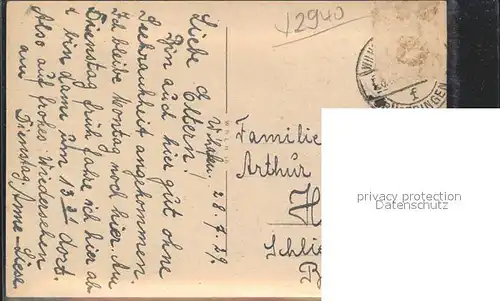 12940
W'hafen, 28.7.29.
Liebe Eltern!
Bin auch hier gut ohne
Seekrankheit angekommen.
Ich bleibe Montag noch hier. Am
Dienstag früh fahre ich hier ab
u. bin dann um 13 dort.
Also auf frohes Wiedersehen
am Dienstag. Anne-Liese.
Familie
Arthur
H
Schlie
B
RINGEN
f
privacy protection
Datenschutz